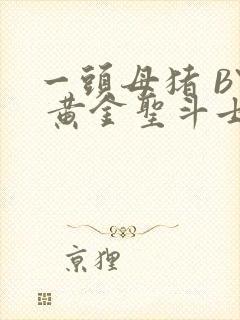 一頭母猪 BY
黄金聖斗士
京狸